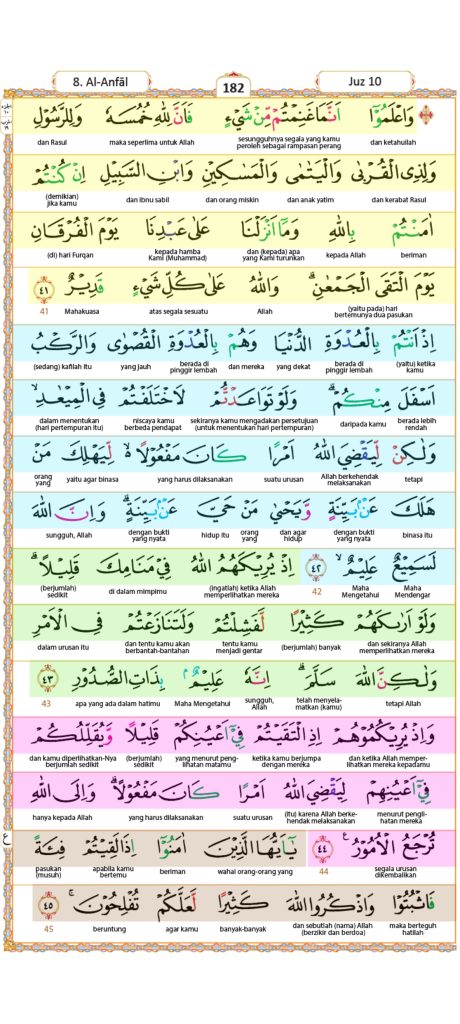 8. Al-Anfāl
182
Juz 10
وَاعْلَمُوْٓا اَنَّمَا غَنِمْتُمْ مِّنْ شَيْءٍ فَاَنَّ لِلّٰهِ خُمُسَهٗ وَلِلرَّسُوْلِ
dan ketahuilah sesungguhnya segala yang kamu peroleh sebagai rampasan perang maka seperlima untuk Allah dan Rasul
وَلِذِى الْقُرْبٰى وَالْيَتٰمٰى وَالْمَسٰكِيْنِ وَابْنِ السَّبِيْلِ اِنْ كُنْتُمْ
dan kerabat Rasul dan anak yatim dan orang miskin dan ibnu sabil (demikian) jika kamu
اٰمَنْتُمْ بِاللّٰهِ وَمَآ اَنْزَلْنَا عَلٰى عَبْدِنَا يَوْمَ الْفُرْقَانِ
beriman kepada Allah dan (kepada) apa yang Kami turunkan kepada hamba Kami (Muhammad) (di) hari Furqan
يَوْمَ الْتَقَى الْجَمْعٰنِۗ وَاللّٰهُ عَلٰى كُلِّ شَيْءٍ قَدِيْرٌ ٤١
(yaitu pada) hari bertemunya dua pasukan Allah atas segala sesuatu Mahakuasa 41
اِذْ اَنْتُمْ بِالْعُدْوَةِ الدُّنْيَا وَهُمْ بِالْعُدْوَةِ الْقُصْوٰى وَالرَّكْبُ
(yaitu) ketika kamu berada di pinggir lembah yang dekat dan mereka berada di pinggir lembah yang jauh (sedang) kafilah itu
اَسْفَلَ مِنْكُمْۗ وَلَوْ تَوَاعَدْتُّمْ لَاخْتَلَفْتُمْ فِى الْمِيْعٰدِۙ
berada lebih rendah daripada kamu sekiranya kamu mengadakan persetujuan (untuk menentukan hari pertempuran) niscaya kamu berbeda pendapat dalam menentukan (hari pertempuran itu)
وَلٰكِنْ لِّيَقْضِيَ اللّٰهُ اَمْرًا كَانَ مَفْعُوْلًا ەۙ لِّيَهْلِكَ مَنْ
tetapi Allah berkehendak melaksanakan suatu urusan yang harus dilaksanakan yaitu agar binasa orang yang
هَلَكَ عَنْۢ بَيِّنَةٍ وَّيَحْيٰى مَنْ حَيَّ عَنْۢ بَيِّنَةٍۗ وَاِنَّ اللّٰهَ
binasa itu dengan bukti yang nyata dan agar hidup orang yang hidup itu dengan bukti yang nyata sungguh, Allah
لَسَمِيْعٌ عَلِيْمٌۙ ٤٢ اِذْ يُرِيْكَهُمُ اللّٰهُ فِيْ مَنَامِكَ قَلِيْلًاۗ
Maha Mendengar Maha Mengetahui 42 (ingatlah) ketika Allah memperlihatkan mereka di dalam mimpimu (berjumlah) sedikit
وَلَوْ اَرٰىكَهُمْ كَثِيْرًا لَّفَشِلْتُمْ وَلَتَنَازَعْتُمْ فِى الْاَمْرِ
dan sekiranya Allah memperlihatkan mereka (berjumlah) banyak tentu kamu menjadi gentar dan tentu kamu akan berbantah-bantahan dalam urusan itu
وَلٰكِنَّ اللّٰهَ سَلَّمَۗ اِنَّهٗ عَلِيْمٌۢ بِذَاتِ الصُّدُوْرِ ٤٣
tetapi Allah telah menyelamatkan (kamu) sungguh, Allah Maha Mengetahui apa yang ada dalam hatimu 43
وَاِذْ يُرِيْكُمُوْهُمْ اِذِ الْتَقَيْتُمْ فِيْٓ اَعْيُنِكُمْ قَلِيْلًا وَّيُقَلِّلُكُمْ
dan ketika Allah memperlihatkan mereka kepadamu ketika kamu berjumpa dengan mereka yang menurut penglihatan matamu (berjumlah) sedikit dan kamu diperlihatkan-Nya berjumlah sedikit
فِيْٓ اَعْيُنِهِمْ لِيَقْضِيَ اللّٰهُ اَمْرًا كَانَ مَفْعُوْلًاۗ وَاِلَى اللّٰهِ
menurut penglihatan mereka (itu) karena Allah berkehendak melaksanakan suatu urusan yang harus dilaksanakan hanya kepada Allah
تُرْجَعُ الْاُمُوْرُ ٤٤ يٰٓاَيُّهَا الَّذِيْنَ اٰمَنُوْٓا اِذَا لَقِيْتُمْ فِئَةً
segala urusan dikembalikan 44 wahai orang-orang yang beriman apabila kamu bertemu pasukan (musuh)
فَاثْبُتُوْا وَاذْكُرُوا اللّٰهَ كَثِيْرًا لَّعَلَّكُمْ تُفْلِحُوْنَۚ ٤٥
maka berteguh hatilah dan sebutlah (nama) Allah (berzikir dan berdoa) banyak-banyak agar kamu beruntung 45